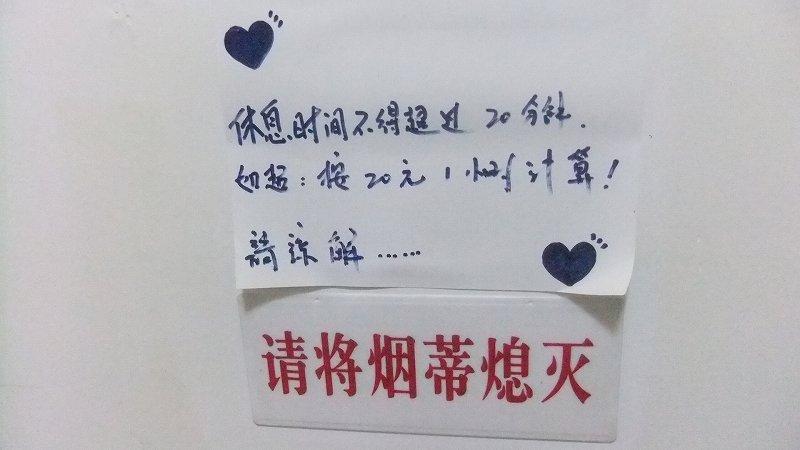 休息时间不得超过 20分钟.
如超：按20元1小时计算！
請谅解……
请将烟蒂熄灭